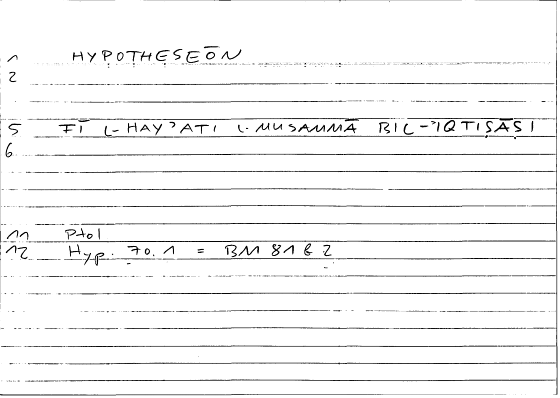 1 HYPOTHESEŌN
2
5 FĪ L-HAYʾATI L-MUSAMMĀ BIL-ʾIQTIṢĀṢI
6
11 Ptol
12 Hyp. 70.1 = BM 81b2